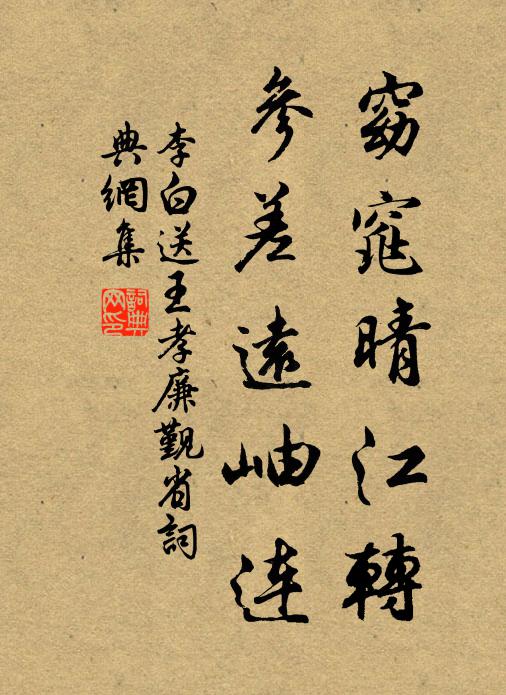 窈窕晴江轉
參差遠岫連
李白送王孝廉覲省詞
典網集
詞典
网印